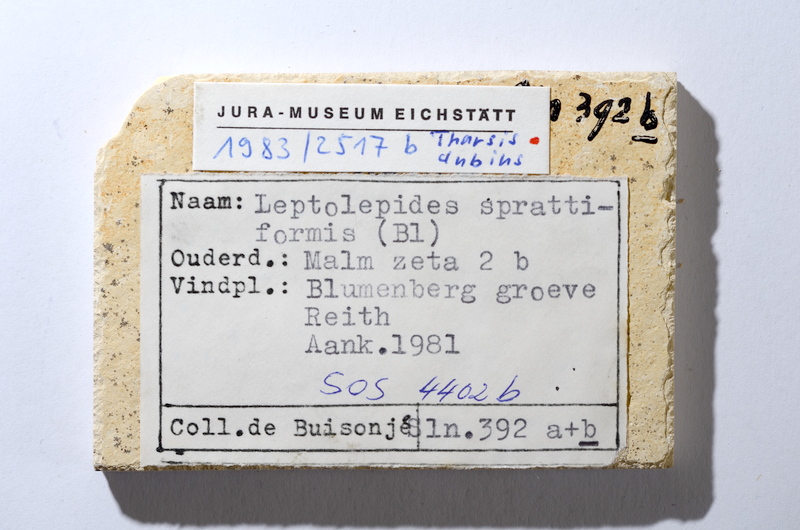 392 b
JURA-MUSEUM EICHSTÄTT
1983/2517 b Tharsis
dubius
Naam: Leptolepides spratti-
formis (Bl)
Ouderd.: Malm zeta 2 b
Vindpl.: Blumenberg groeve
Reith
Aank.1981
SOS 4402 b
Coll.de Buisonjé Sln.392 a+b